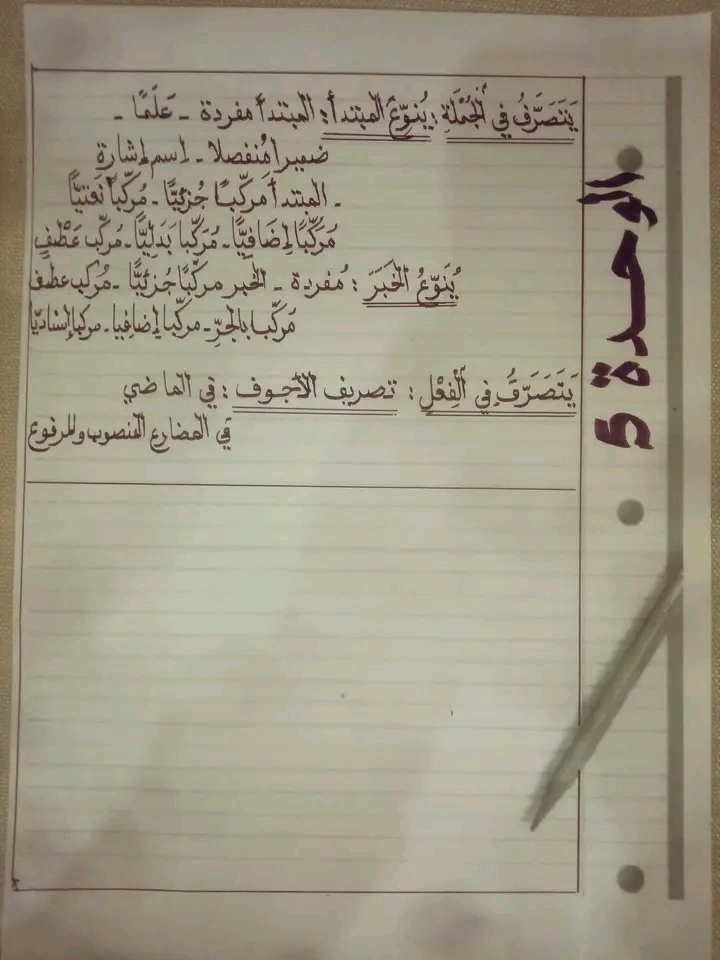 الوحدة 5
يَتَصَرَّفُ في الْجُمْلَةِ : يُنوّعُ المبتدأ : المبتدأ مفردة - عَلَمًا -
ضميرا مُنفصلا - اسم إشارة
- المبتدأ مركّبًا جُزئيًّا - مُركّبًا نعتيًّا
مُرَكّبًا إضَافيًّا - مُرَكّبا بَدَليًّا - مُركّب عَطْفٍ
يُنَوّعُ الخَبَرَ : مُفردة - الخبر مركّبًا جُزئيًّا - مُركب عطف
مَركّبا بالجرّ - مركّبا إضافيا - مركبا إسناديّا
يَتَصَرَّفُ في الْفِعْلِ : تصريف الأجوف : في الماضي
في المضارع المنصوب والمرفوع